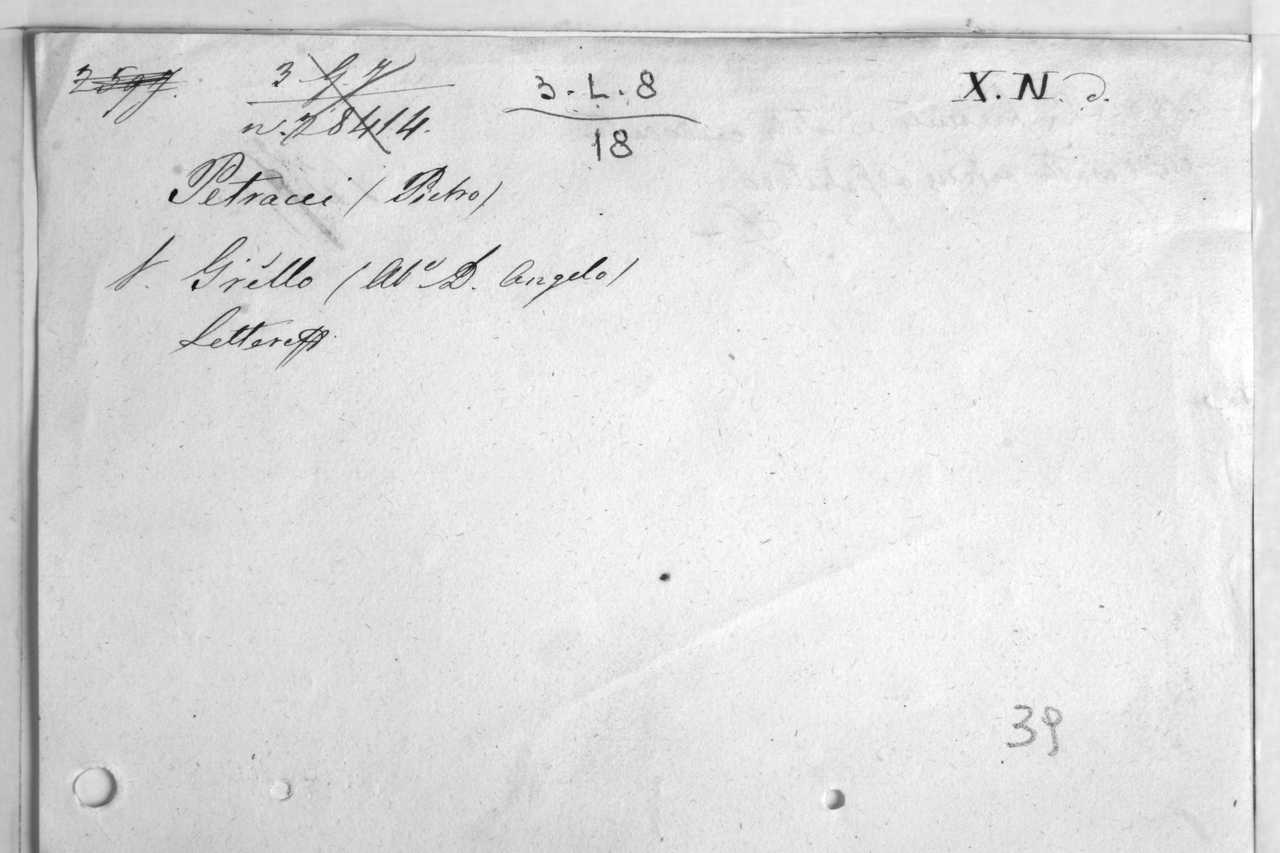 3 G. 7
n. 28414.
3. L. 8
18
X. N. d.
Petracci (Pietro)
V. Grillo (Abe D. Angelo)
Lettere
39